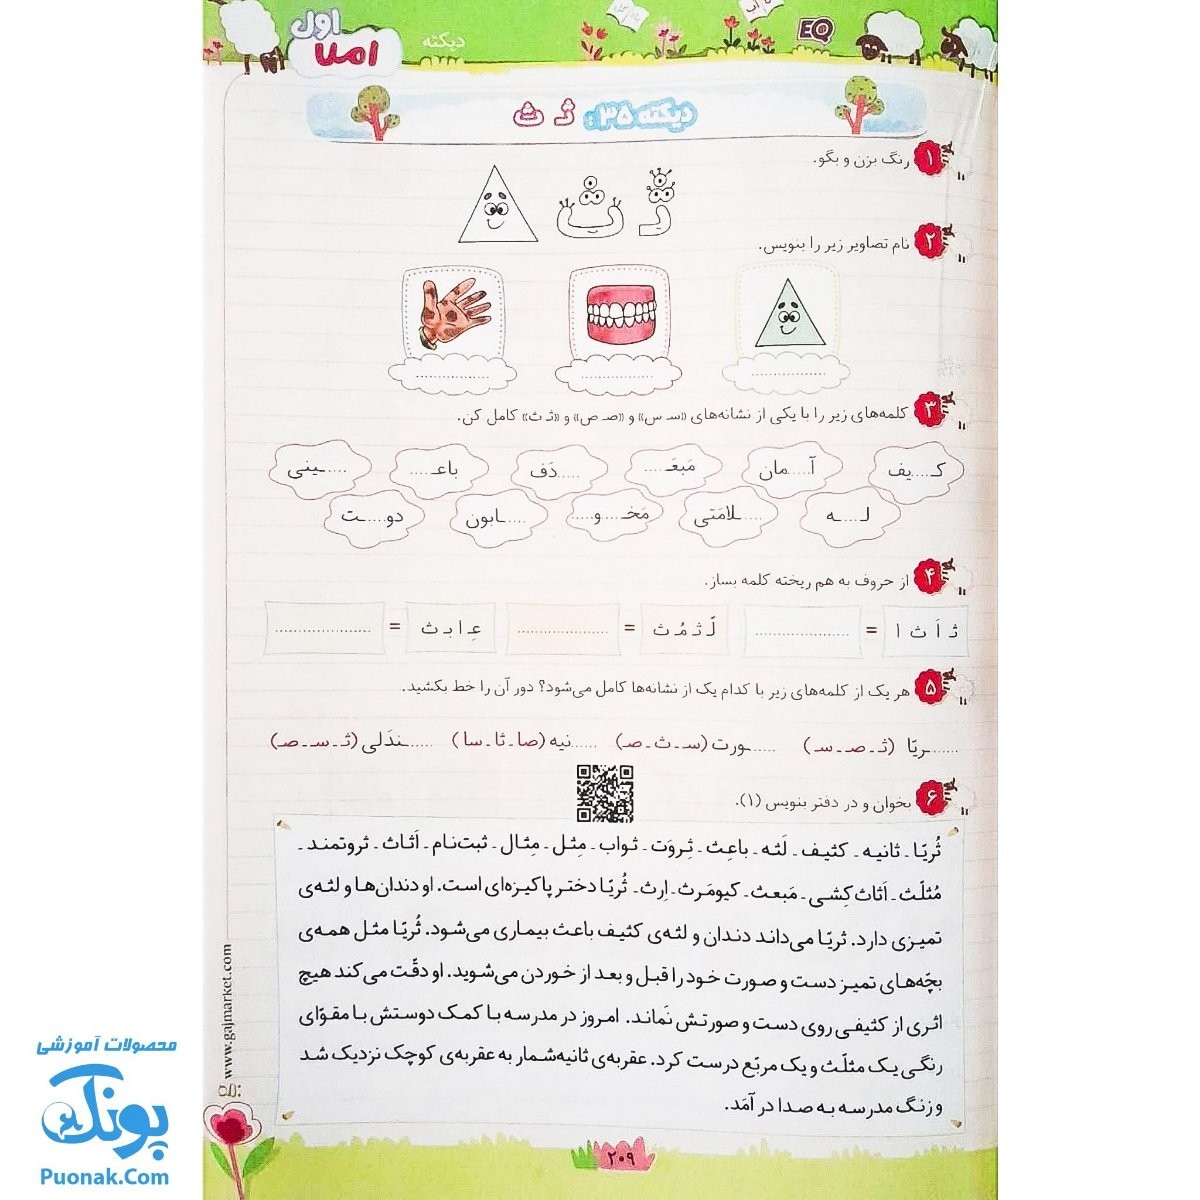 املا اول
دیکته
EQ
دیکته ۳۵: ثـ ث
۱ رنگ بزن و بگو.
ثـ ث
۲ نام تصاویر زیر را بنویس.
۳ کلمه‌های زیر را با یکی از نشانه‌های «سـ س» و «صـ ص» و «ثـ ث» کامل کن.
کـ.....یف آ.....مان مَبعَـ..... .....دَف باعـ..... .....ـینی
لـ.....ـه .....ـلامَتی مَخـ.....و..... .....ـابون دو.....ـت
۴ از حروف به هم ریخته کلمه بساز.
ثـ اَ ث ا = ..................... لَّ ثـ مُـ ث = ..................... عِـ ا بـ ث = .....................
۵ هر یک از کلمه‌های زیر با کدام یک از نشانه‌ها کامل می‌شود؟ دور آن را خط بکشید.
......ـریّا (ثـ ـ صـ ـ سـ) ......ـورت (سـ ـ ث ـ صـ) ......نیه (صا ـ ثا ـ سا) ......ـندَلی (ثـ ـ سـ ـ صـ)
۶ بخوان و در دفتر بنویس (۱).
ثُریّا ـ ثانیه ـ کثیف ـ لَثه ـ باعِث ـ ثِروَت ـ ثواب ـ مِثل ـ مِثال ـ ثبت‌نام ـ اَثاث ـ ثروتمند ـ
مُثلَّث ـ اَثاث‌کِشی ـ مَبعث ـ کیومَرث ـ اِرث ـ ثُریّا دختر پاکیزه‌ای است. او دندان‌ها و لثه‌ی
تمیزی دارد. ثریّا می‌داند دندان و لثه‌ی کثیف باعث بیماری می‌شود. ثُریّا مثل همه‌ی
بچّه‌های تمیز دست و صورت خود را قبل و بعد از خوردن می‌شوید. او دقّت می‌کند هیچ
اثری از کثیفی روی دست و صورتش نَماند. امروز در مدرسه با کمک دوستش با مقوّای
رنگی یک مثلّث و یک مربّع درست کرد. عقربه‌ی ثانیه‌شمار به عقربه‌ی کوچک نزدیک شد
و زنگ مدرسه به صدا در آمَد.
www.gajmarket.com
۲۰۹
محصولات آموزشی
پونک
Puonak.Com